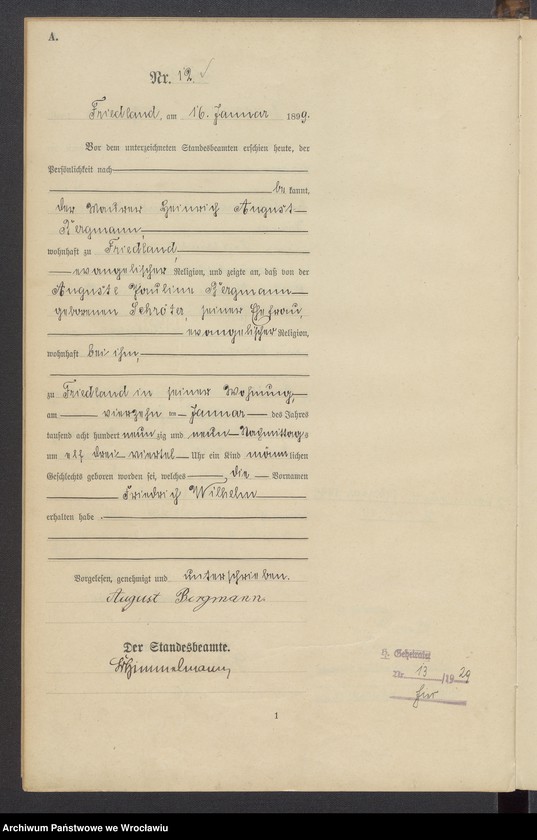 A.
Nr. 12
Friedland, am 16. Januar 1899.
Vor dem unterzeichneten Standesbeamten erschien heute, der
Persönlichkeit nach
be kannt,
der Maurer Heinrich August
Bergmann,
wohnhaft zu Friedland,
evangelischer Religion, und zeigte an, daß von der
Auguste Pauline Bergmann
geborenen Schröter, seiner Ehefrau,
evangelischer Religion,
wohnhaft bei ihm,
zu Friedland in seiner Wohnung,
am vierzehn ten Januar des Jahres
tausend acht hundert neun zig und neun Nachmittags
um elf drei viertel Uhr ein Kind männlichen
Geschlechts geboren worden sei, welches die Vornamen
Friedrich Wilhelm
erhalten habe.
Vorgelesen, genehmigt und unterschrieben.
August Bergmann
Der Standesbeamte.
Himmelmann
Geheiratet
Nr. 13 /19 29
hier
1
Archiwum Państwowe we Wrocławiu